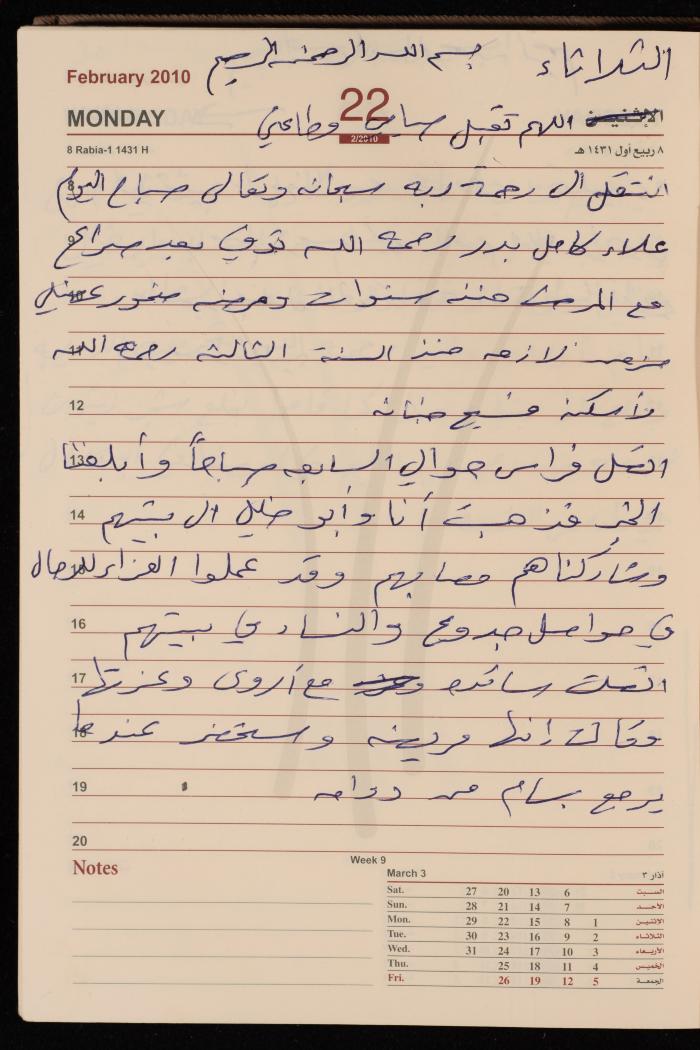 الثلاثاء بسم الله الرحمن الرحيم
February 2010
MONDAY 22 الإثنين
اللهم تقبل صيامي وطاعتي
2/2010
8 Rabia-1 1431 H ٨ ربيع أول ١٤٣١ هـ
8 انتقل الى رحمة ربه سبحانه وتعالى صباح اليوم
9 علاء كامل بدر رحمه الله توفي بعد صراع
10 مع المرض منذ سنوات ومرضه ضمور عضلي
11 مزمن لازمه منذ السنة الثالثة رحمه الله
12 وأسكنه فسيح جناته
13 اتصل فراس حوالي السابعه صباحاً وأبلغنا
14 الخبر فذهبت أنا وأبو خليل الى بيتهم
15 وشاركناهم مصابهم وقد عملوا العزاء للرجال
16 في حواصل جدوع والنساء في بيتهم
17 اتصلت سائده مع أروى وعزتها
18 وقالت إنها مريضه وستحضر عندما
19 يرجع بسام من دوامه
20
Notes
Week 9
March 3 آذار ٣
Sat. 27 20 13 6 السبت
Sun. 28 21 14 7 الأحد
Mon. 29 22 15 8 1 الاثنين
Tue. 30 23 16 9 2 الثلاثاء
Wed. 31 24 17 10 3 الأربعاء
Thu. 25 18 11 4 الخميس
Fri. 26 19 12 5 الجمعة